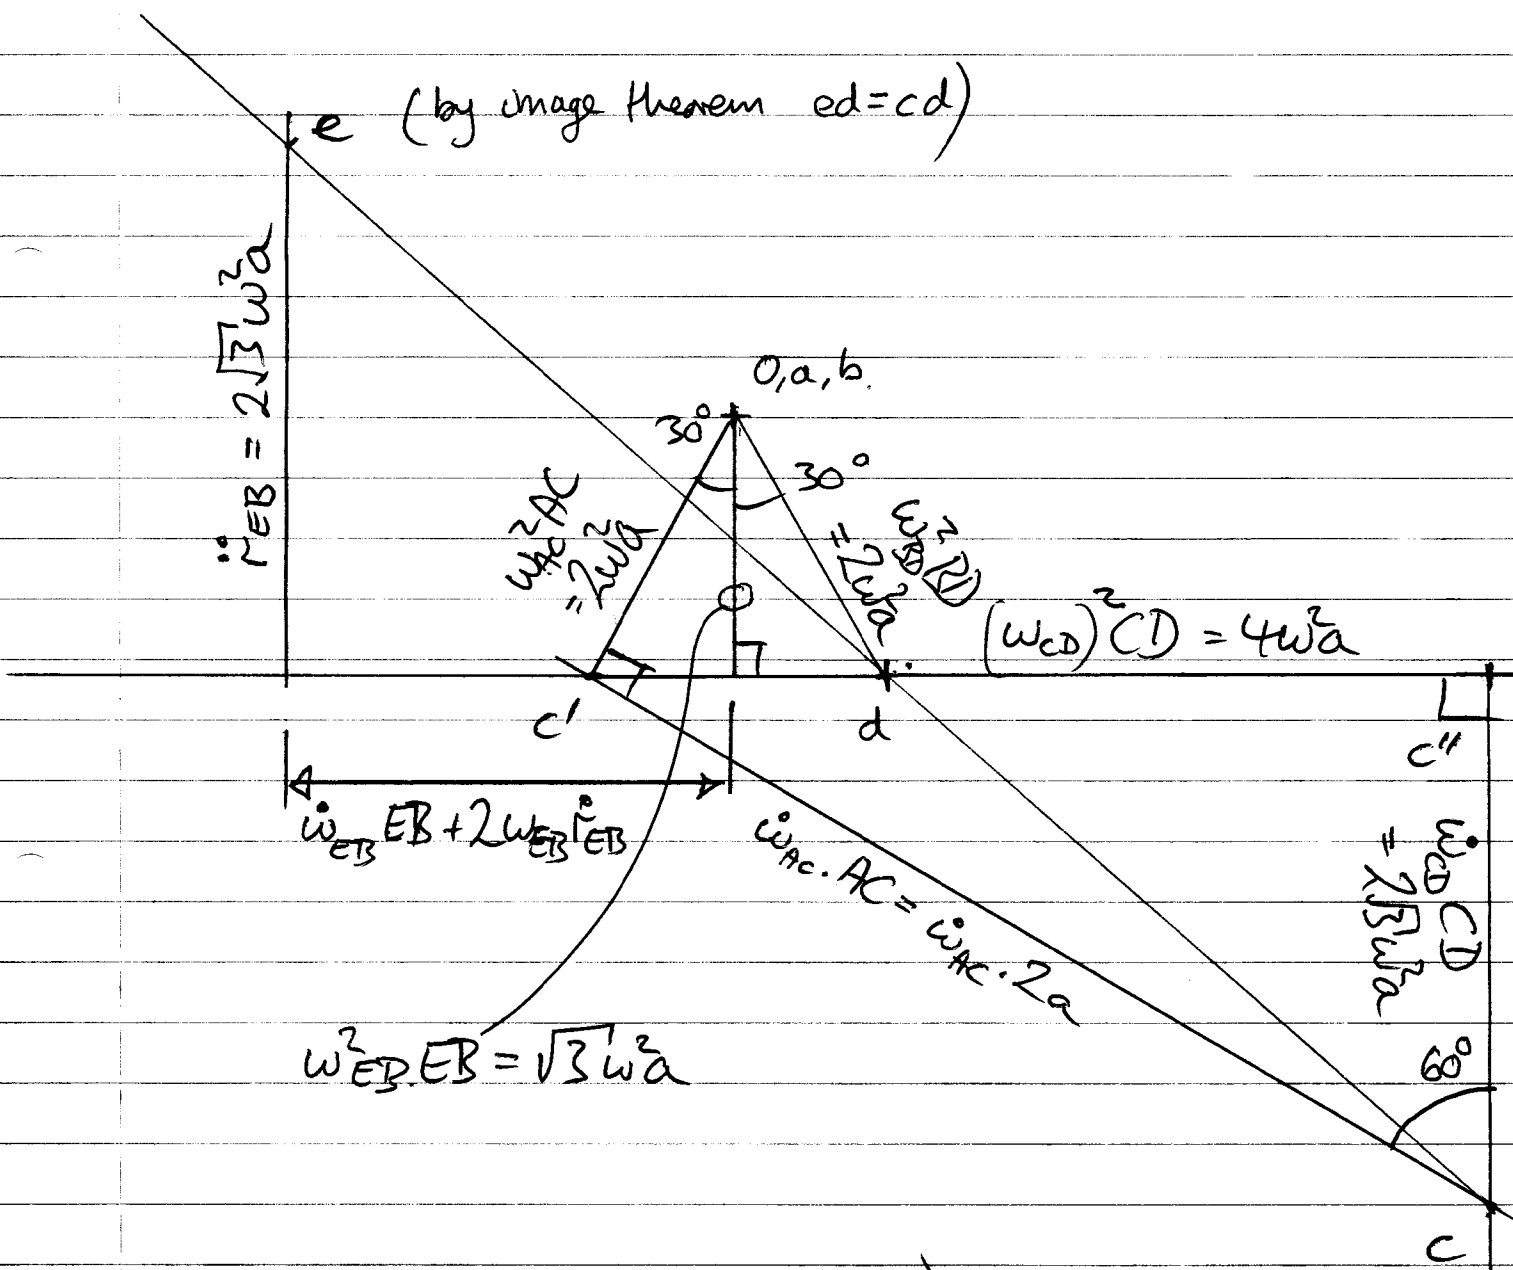 e (by image theorem ed=cd)
r̈EB = 2√3 ω²a
O,a,b.
30°
30°
ωAC²AC
=2ω²a
ωBD²BD
=2ω²a
(ωCD)²CD = 4ω²a
c'
d
c''
ω̇EB EB+2ωEB ṙEB
ω̇AC. AC = ω̇AC. 2a
ω̇CD CD
= 2√3ω²a
ω²EB. EB = √3 ω²a
60°
c